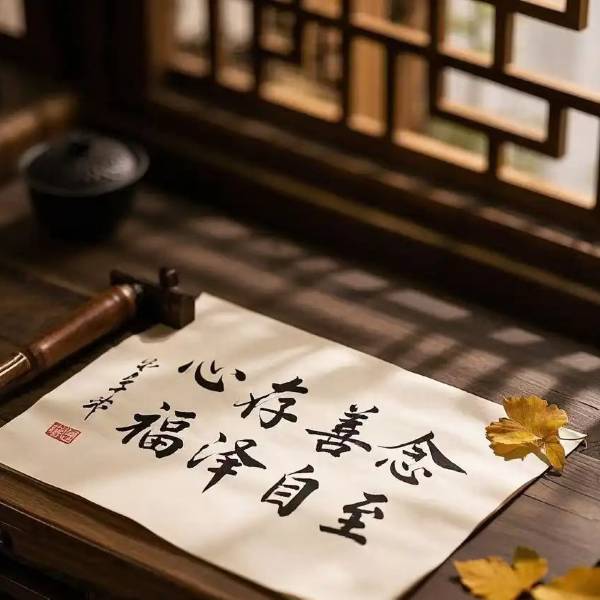 心存善念
福泽自至